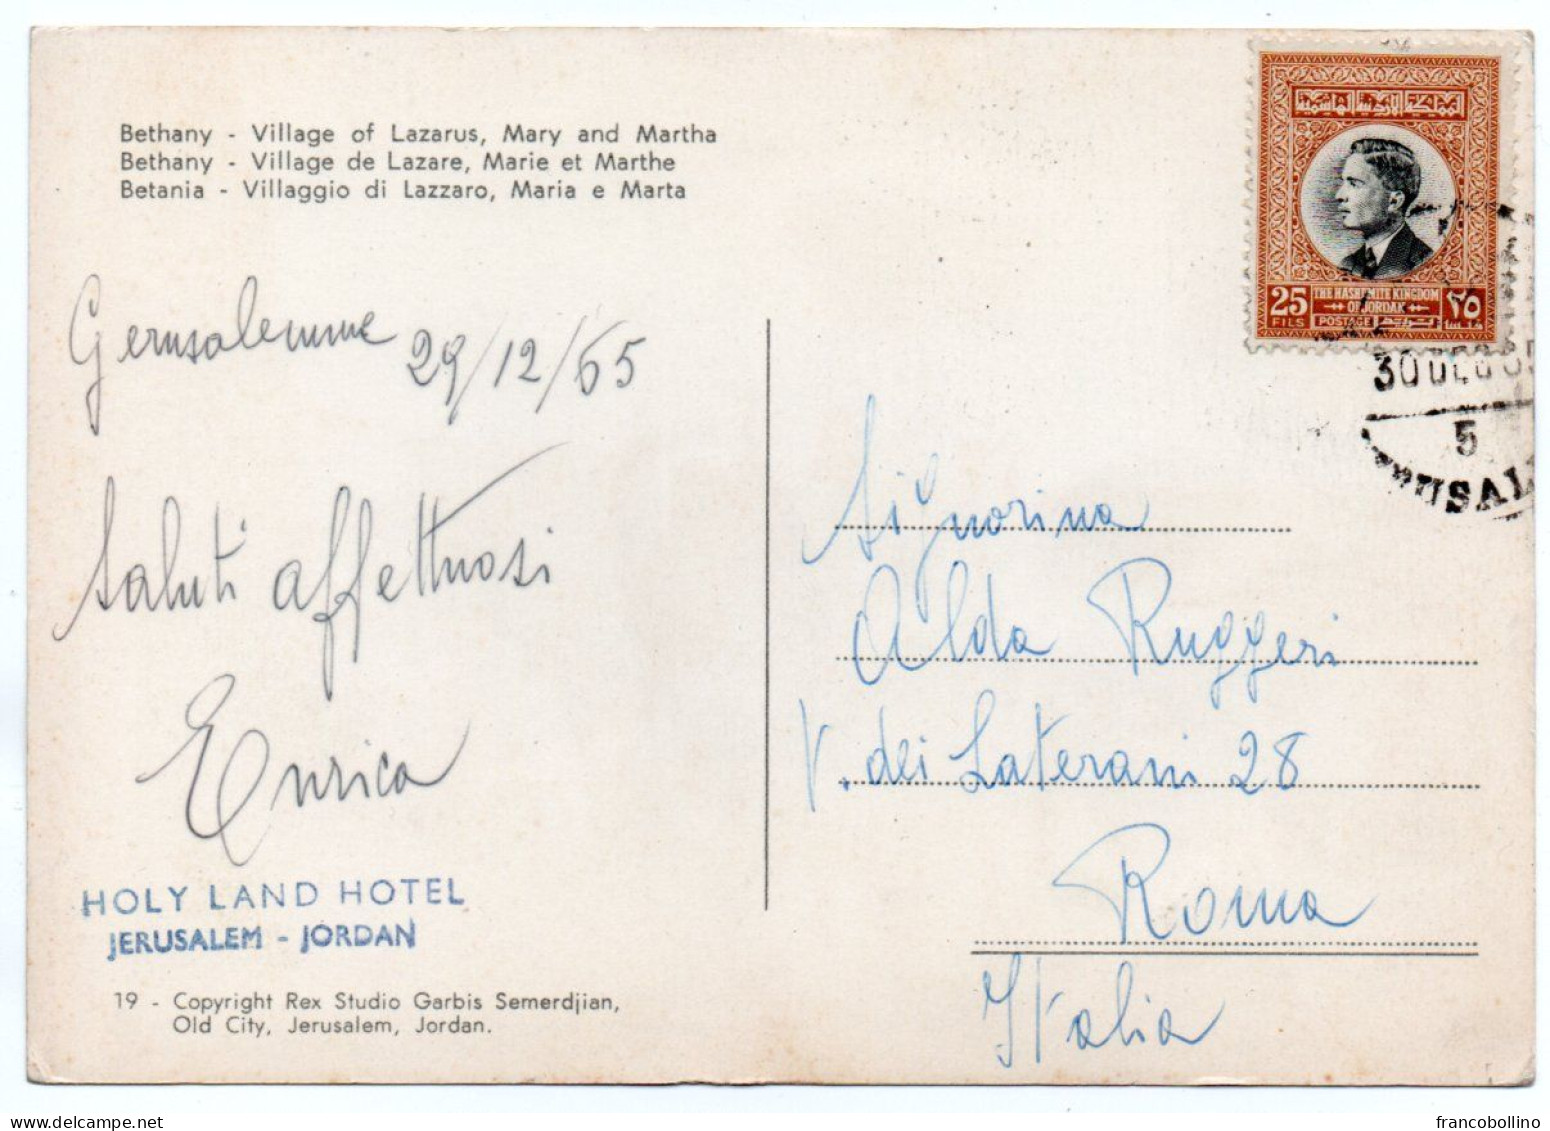 Bethany - Village of Lazarus, Mary and Martha
Bethany - Village de Lazare, Marie et Marthe
Betania - Villaggio di Lazzaro, Maria e Marta
Gerusalemme 29/12/65
Saluti affettuosi
Enrica
HOLY LAND HOTEL
JERUSALEM - JORDAN
19 - Copyright Rex Studio Garbis Semerdjian,
Old City, Jerusalem, Jordan.
المملكة الأردنية الهاشمية
25 THE HASHEMITE KINGDOM ٢٥
FILS OF JORDAN فلسا
POSTAGE بريد
30 DEC 65
5
Signorina
Alda Ruggeri
V. dei Laterani 28
Roma
Italia
francobollino